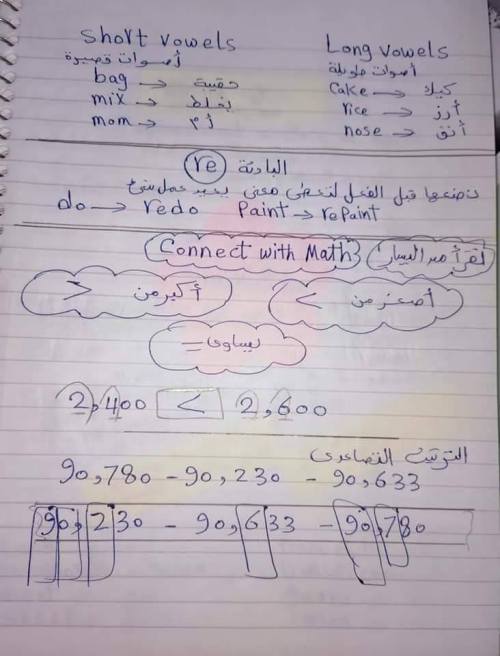 Short vowels
أصوات قصيرة
bag → حقيبة
mix → يخلط
mom → أم
Long vowels
أصوات طويلة
Cake → كيك
rice → أرز
nose → أنف
البادئة re
نضعها قبل الفعل لتعطى معنى يعيد عمل شئ
do → redo Paint → repaint
Connect with Math
أكبر من >
أصغر من <
يساوى =
2,400 < 2,600
الترتيب التصاعدى
90,780 - 90,230 - 90,633
90,230 - 90,633 - 90,780